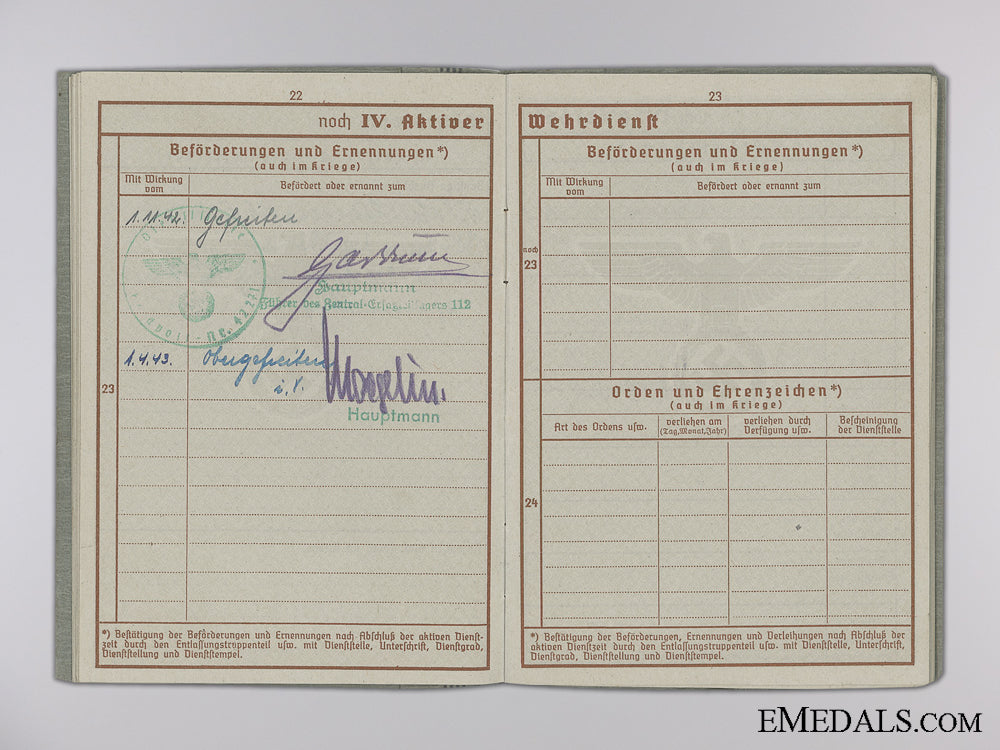 22
noch IV. Aktiver
Beförderungen und Ernennungen*)
(auch im Kriege)
Mit Wirkung vom
Befördert oder ernannt zum
1.11.42. Gefreiten
Hauptmann
Führer des Zentral-Ersatzteillagers 112
1.4.43. Obergefreiten
i.V.
Hauptmann
23
*) Bestätigung der Beförderungen und Ernennungen nach Abschluß der aktiven Dienst-
zeit durch den Entlassungstruppenteil usw. mit Dienststelle, Unterschrift, Dienstgrad,
Dienststellung und Dienststempel.
23
Wehrdienst
Beförderungen und Ernennungen*)
(auch im Kriege)
Mit Wirkung vom
Befördert oder ernannt zum
noch
23
Orden und Ehrenzeichen*)
(auch im Kriege)
Art des Ordens usw.
verliehen am
(Tag, Monat, Jahr)
verliehen durch
Verfügung usw.
Bescheinigung
der Dienststelle
24
*) Bestätigung der Beförderungen, Ernennungen und Verleihungen nach Abschluß der
aktiven Dienstzeit durch den Entlassungstruppenteil usw. mit Dienststelle, Unterschrift,
Dienstgrad, Dienststellung und Dienststempel.
EMEDALS.COM